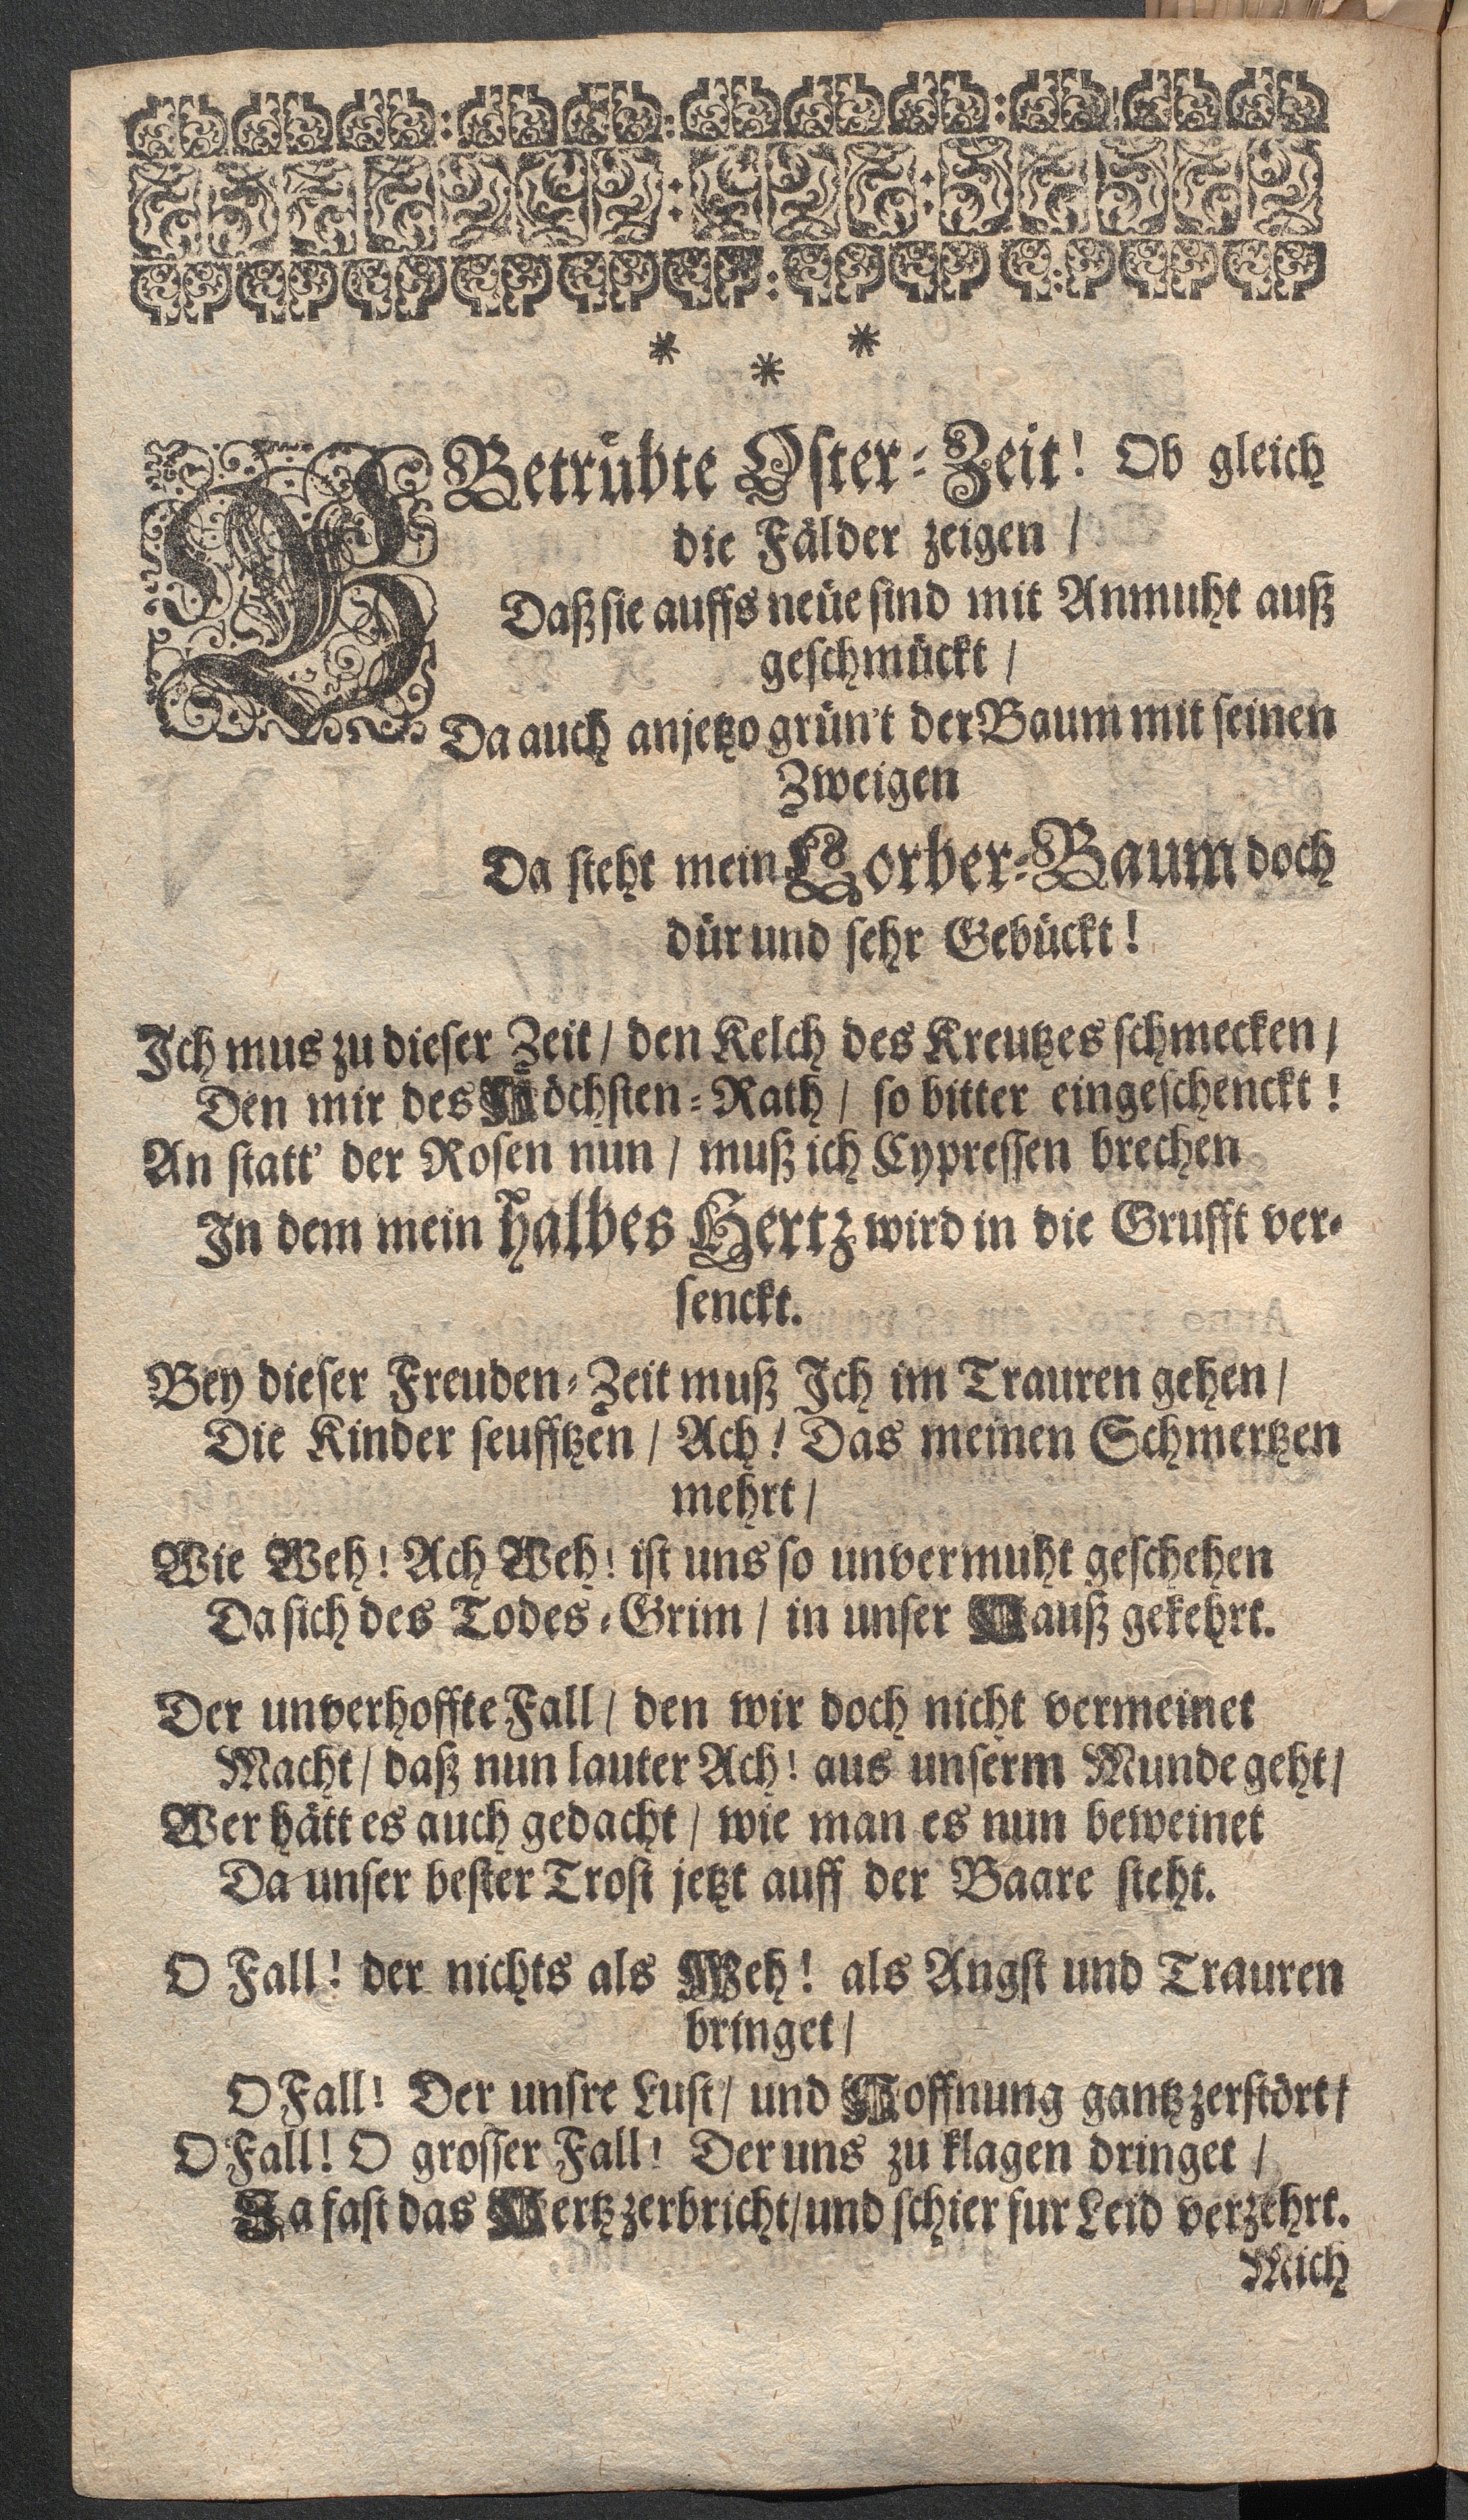 * * *
O Betrübte Oster-Zeit! Ob gleich
die Fälder zeigen /
Daß sie auffs neüe sind mit Anmuht auß
geschmückt /
Da auch anjetzo grün't der Baum mit seinen
Zweigen
Da steht mein Lorber-Baum doch
dür und sehr Gebückt!
Ich mus zu dieser Zeit / den Kelch des Kreutzes schmecken /
Den mir des Höchsten-Rath / so bitter eingeschenckt!
An statt' der Rosen nun / muß ich Cypressen brechen
In dem mein halbes Hertz wird in die Grufft ver-
senckt.
Bey dieser Freuden-Zeit muß Ich im Trauren gehen /
Die Kinder seufftzen / Ach! Das meinen Schmertzen
mehrt /
Wie Weh! Ach Weh! ist uns so unvermuht geschehen
Da sich des Todes-Grim / in unser Hauß gekehrt.
Der unverhoffte Fall / den wir doch nicht vermeinet
Macht / daß nun lauter Ach! aus unserm Munde geht /
Wer hätt es auch gedacht / wie man es nun beweinet
Da unser bester Trost jetzt auff der Baare steht.
O Fall! der nichts als Weh! als Angst und Trauren
bringet /
O Fall! Der unsre Lust / und Hoffnung gantz zerstört /
O Fall! O grosser Fall! Der uns zu klagen dringet /
Ja fast das Hertz zerbricht / und schier fur Leid verzehrt.
Mich